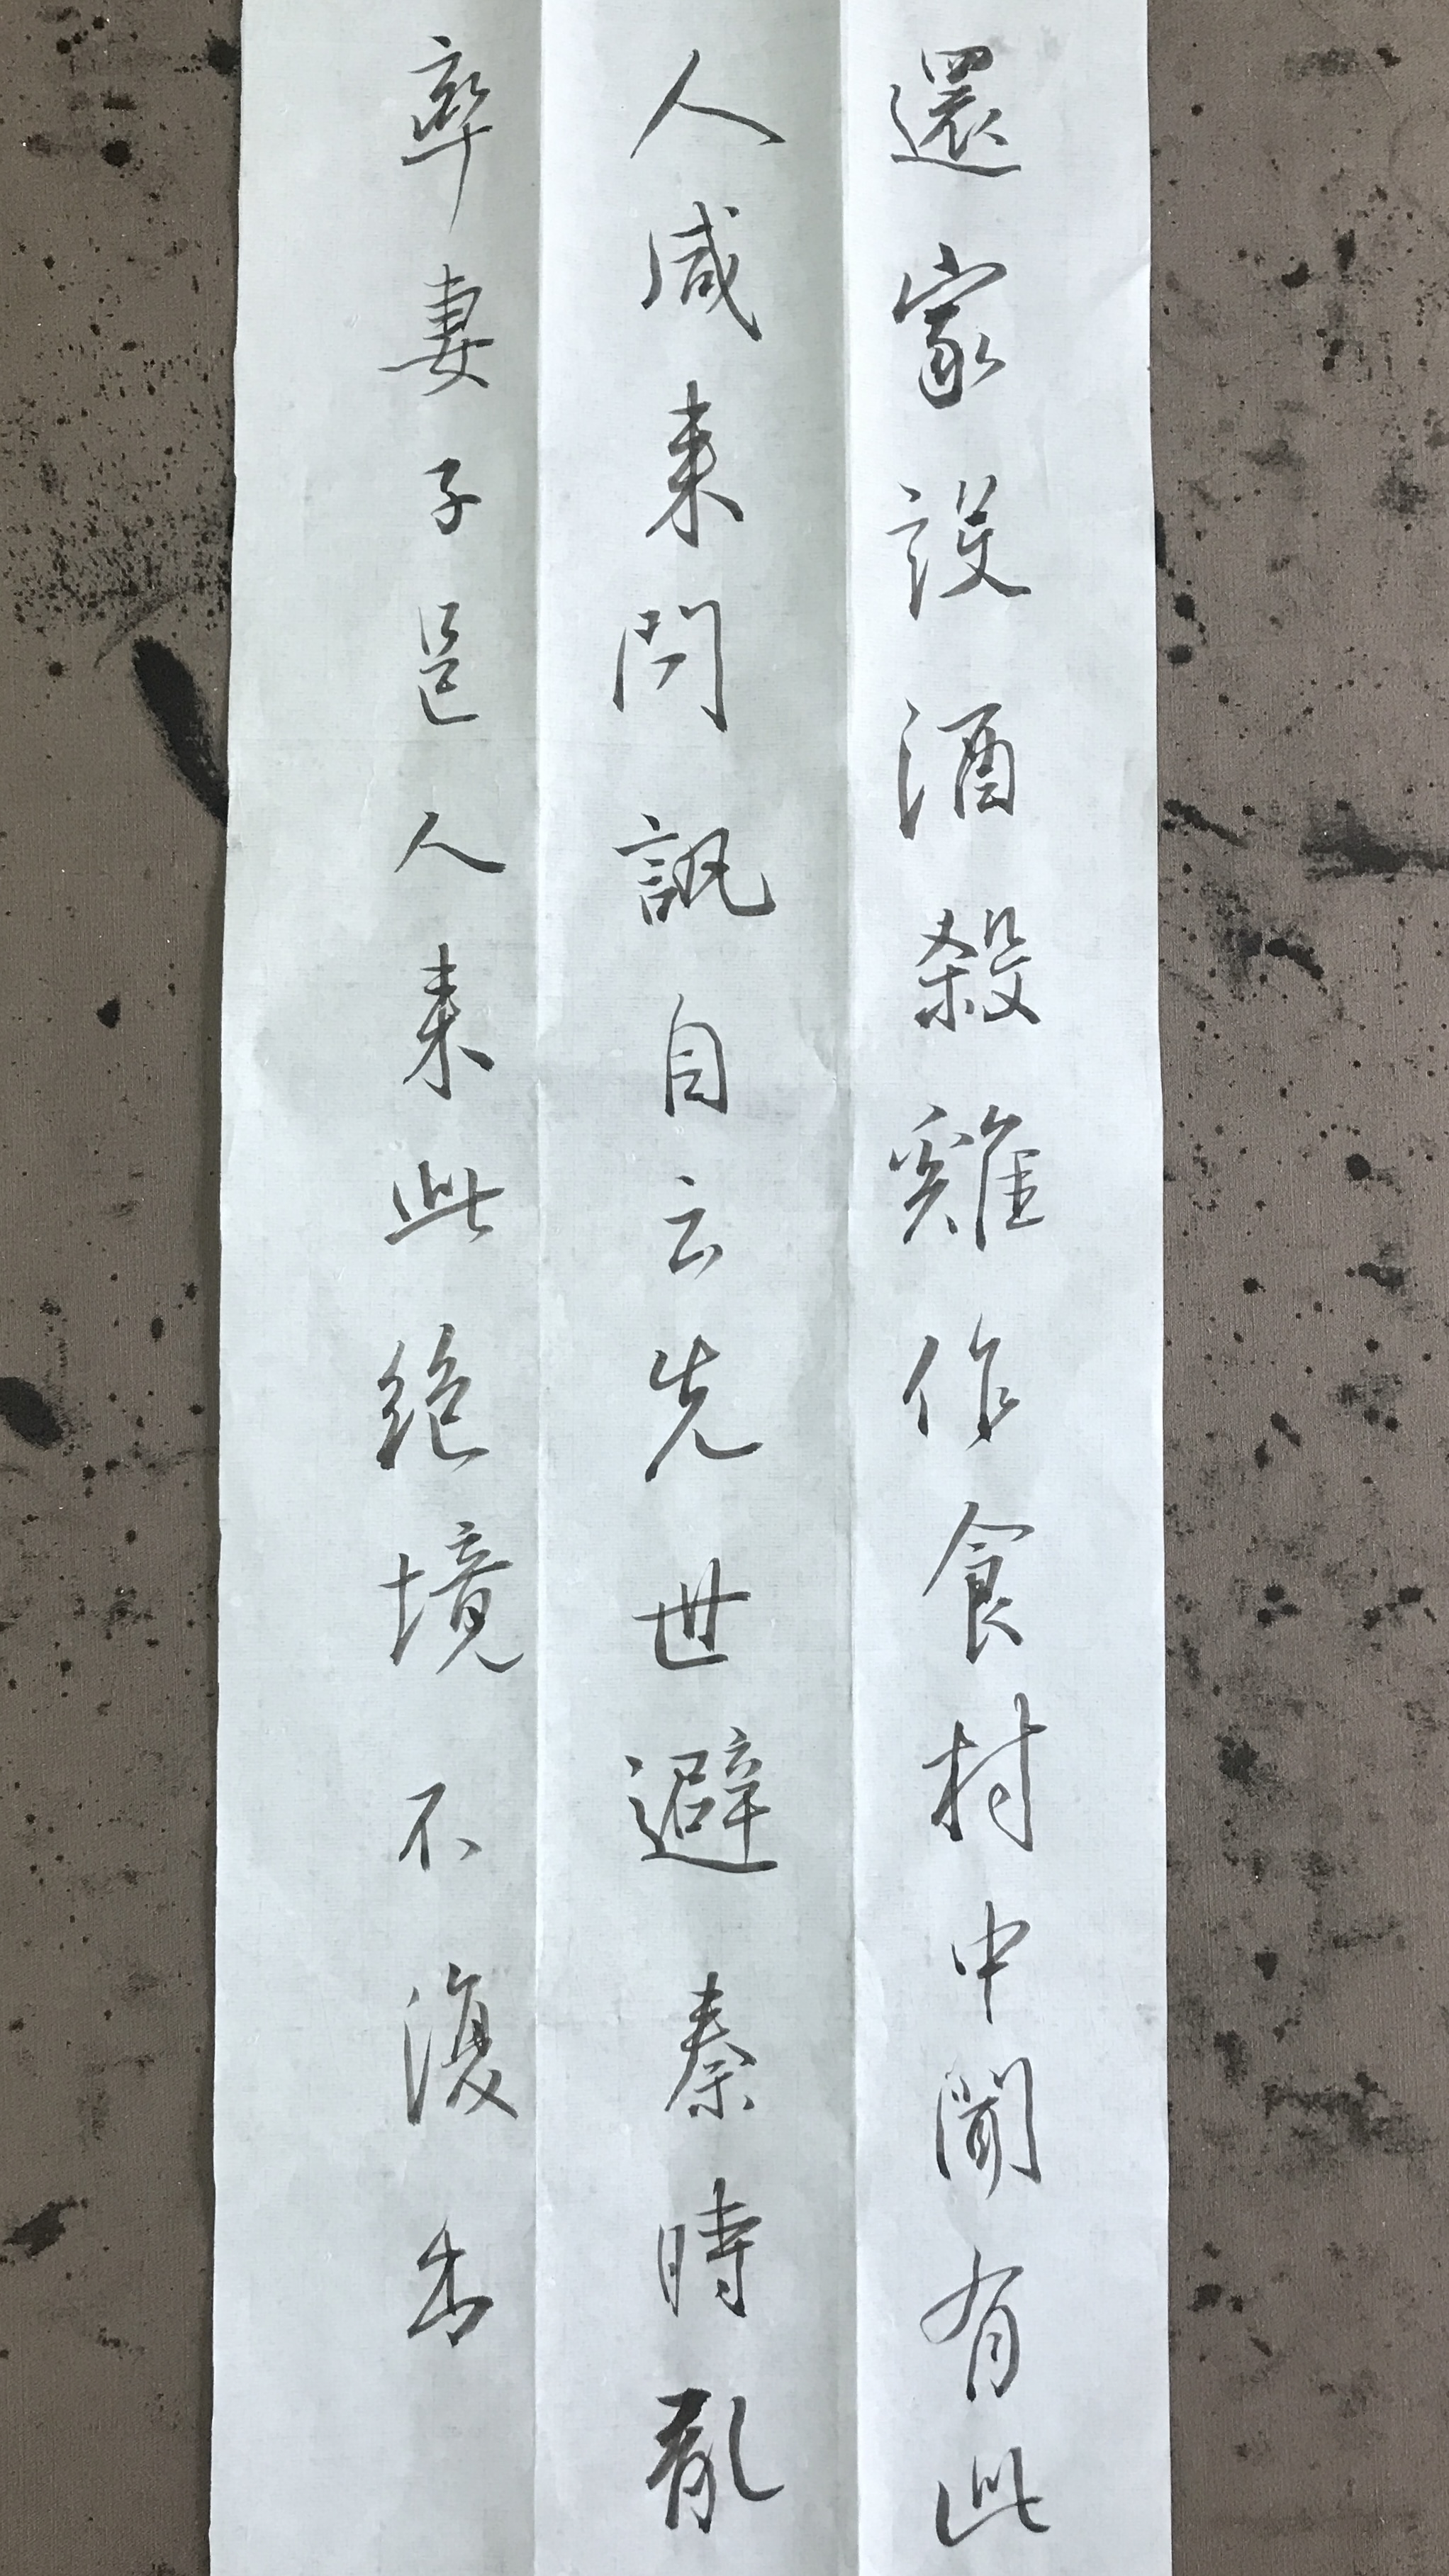 還家設酒殺雞作食村中聞有此
人咸来問訊自云先世避秦時亂
率妻子邑人来此絕境不復出